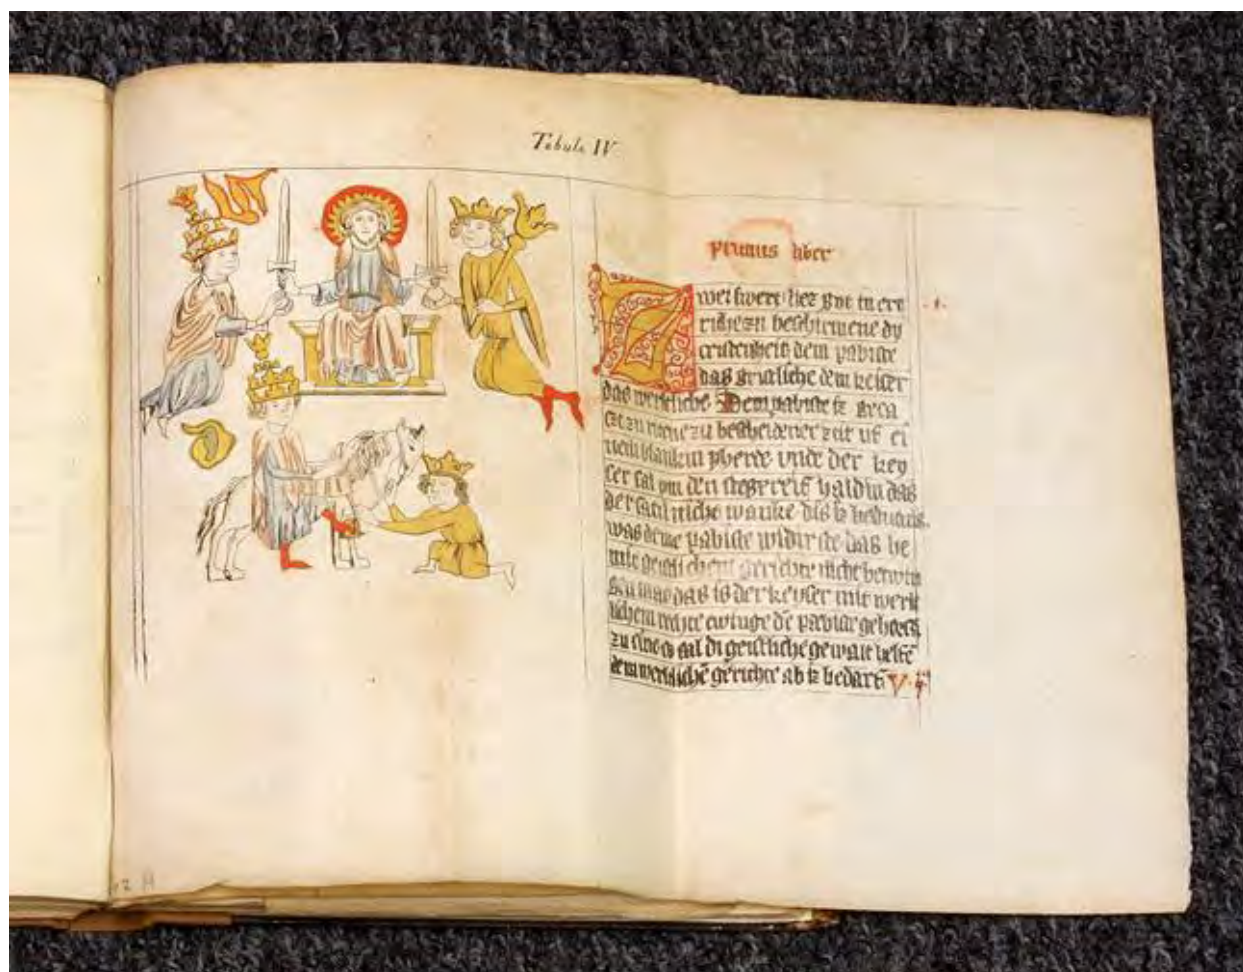 Tabula IV
primus liber
Zwei swert liez got in ert
riche zu beschirmene dy
cristenheit dem pabiste
das geistliche dem keiser
das werltliche. Dem pabiste is geca
czt zu ritene zu bescheidener zit uf ei
nem blankin pherde vnde der key
ser sal ym den stegereif haldin das
der satil niche wanke dis is
was deme pabiste widir ste das he
mit geistlichem gerichte niche betwin
gen mag das is der keyser mit werlt
lichem rechte twinge dē pabiste
zu sine so sal di geistliche gewalt helfē
dem werltlichē gerichte ab is bedarf